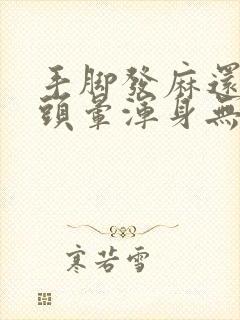 手脚發麻還
頭暈渾身無
寒若雪